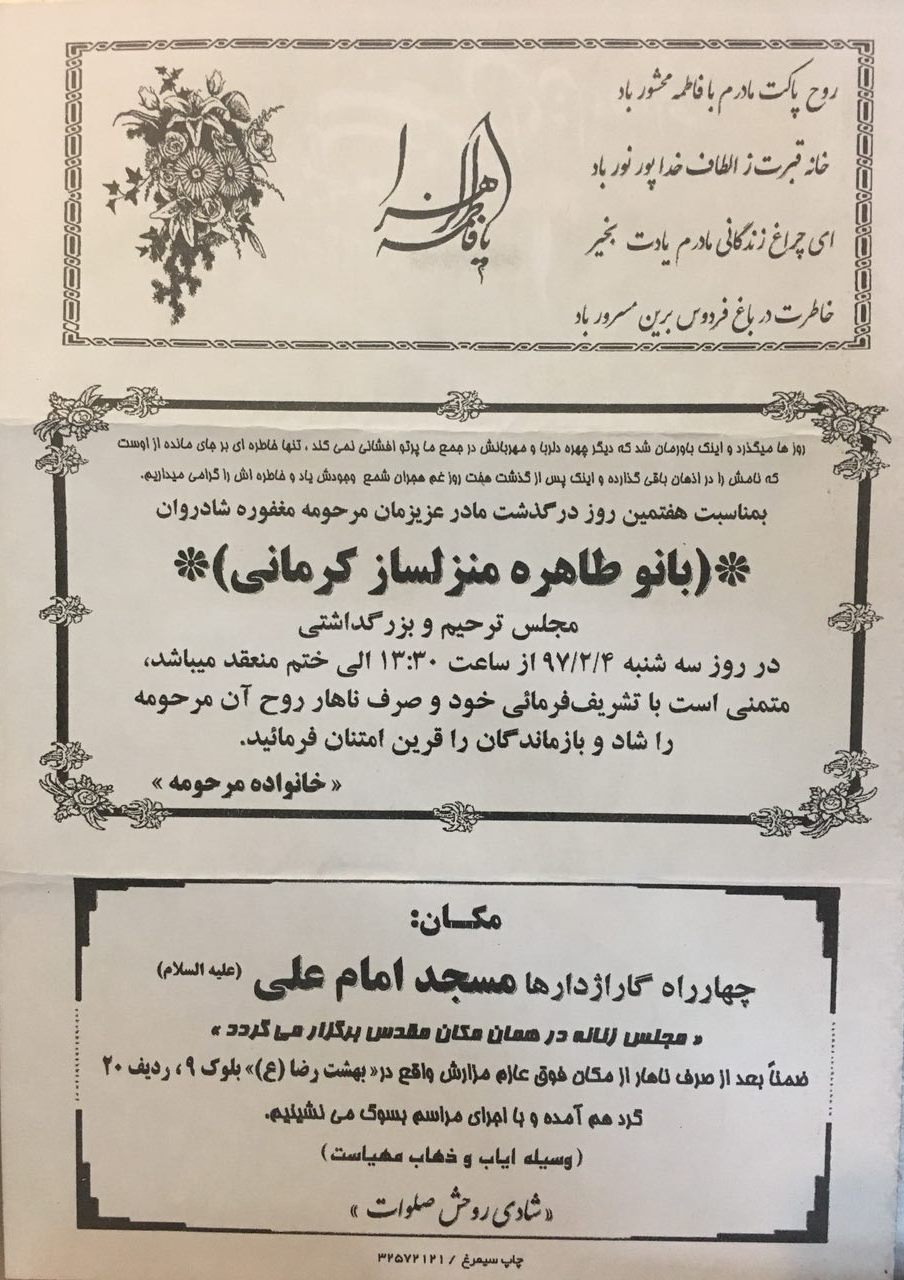 روح پاکت مادرم با فاطمه محشور باد
خانه قبرت ز الطاف خدا پور نور باد
ای چراغ زندگانی مادرم یادت بخیر
خاطرت در باغ فردوس برین مسرور باد
یا فاطمة الزهرا
روز ها میگذرد و اینک باورمان شد که دیگر چهره دلربا و مهربانش در جمع ما پرتو افشانی نمی کند ، تنها خاطره ای بر جای مانده از اوست
که نامش را در اذهان باقی گذارده و اینک پس از گذشت هفت روز غم هجران شمع وجودش یاد و خاطره اش را گرامی میداریم.
بمناسبت هفتمین روز درگذشت مادر عزیزمان مرحومه مغفوره شادروان
*(بانو طاهره منزلساز کرمانی)*
مجلس ترحیم و بزرگداشتی
در روز سه شنبه ۹۷/۲/۴ از ساعت ۱۳:۳۰ الی ختم منعقد میباشد،
متمنی است با تشریف‌فرمائی خود و صرف ناهار روح آن مرحومه
را شاد و بازماندگان را قرین امتنان فرمائید.
« خانواده مرحومه »
مکان:
چهارراه گاراژدارها مسجد امام علی (علیه السلام)
« مجلس زنانه در همان مکان مقدس برگزار می گردد »
ضمناً بعد از صرف ناهار از مکان فوق عازم مزارش واقع در« بهشت رضا (ع)» بلوک ۹ ، ردیف ۲۰
گرد هم آمده و با اجرای مراسم بسوگ می نشینیم.
(وسیله ایاب و ذهاب مهیاست)
« شادی روحش صلوات »
چاپ سیمرغ / ۳۲۵۷۲۱۲۱